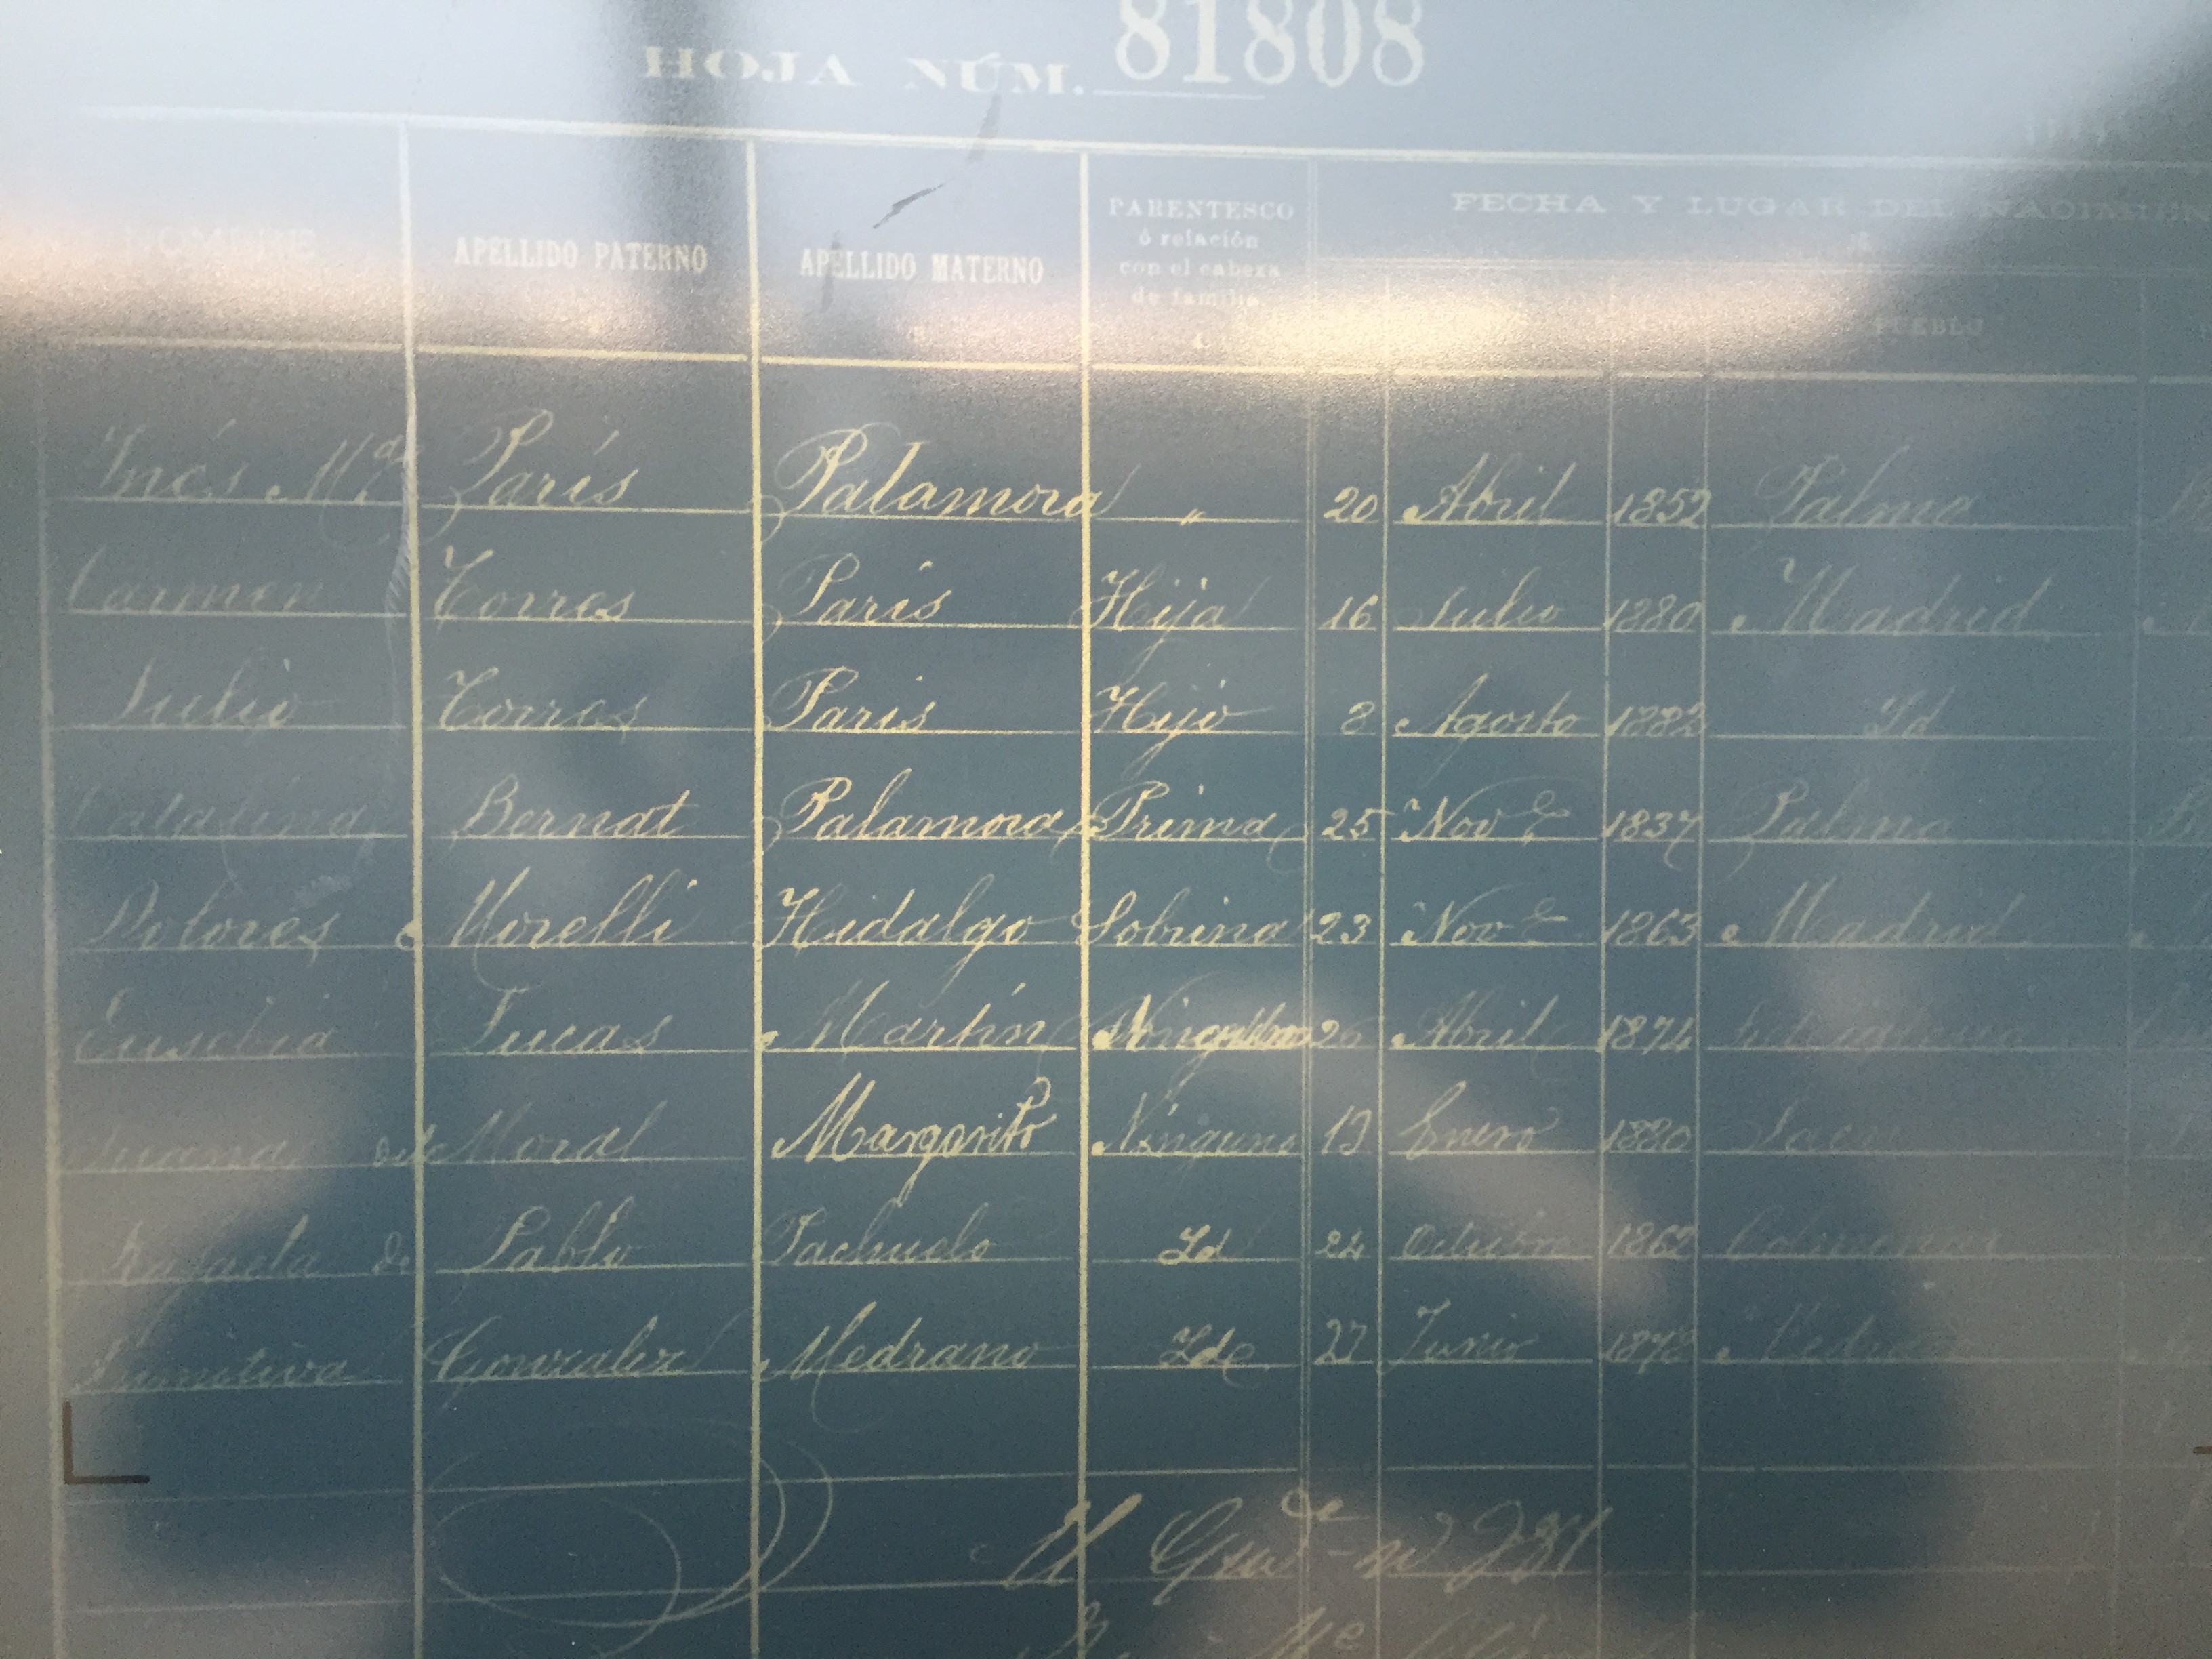 HOJA NÚM. 81808
NOMBRE APELLIDO PATERNO APELLIDO MATERNO PARENTESCO ó relación con el cabeza de familia. FECHA Y LUGAR DEL NACIMIEN
PUEBLO
Inés Mª París Palamora " 20 Abril 1852 Palma
Carmen Torres París Hija 16 Julio 1880 Madrid
Julio Torres Paris Hijo 8 Agosto 1882 Id
Catalina Bernat Palamora Prima 25 Novᵉ 1837 Palma
Dolores Morelli Hidalgo Sobrina 23 Novᵉ 1863 Madrid
Eusebia Lucas Martín 26 Abril 1874
Juana del Moral Margarito Ninguno 13 Enero 1880 Jaen
Rafaela de Pablo Tachuelo Id 24 1862 Colmenar
Primitiva Gonzalez Medrano Id 27 Junio 1878